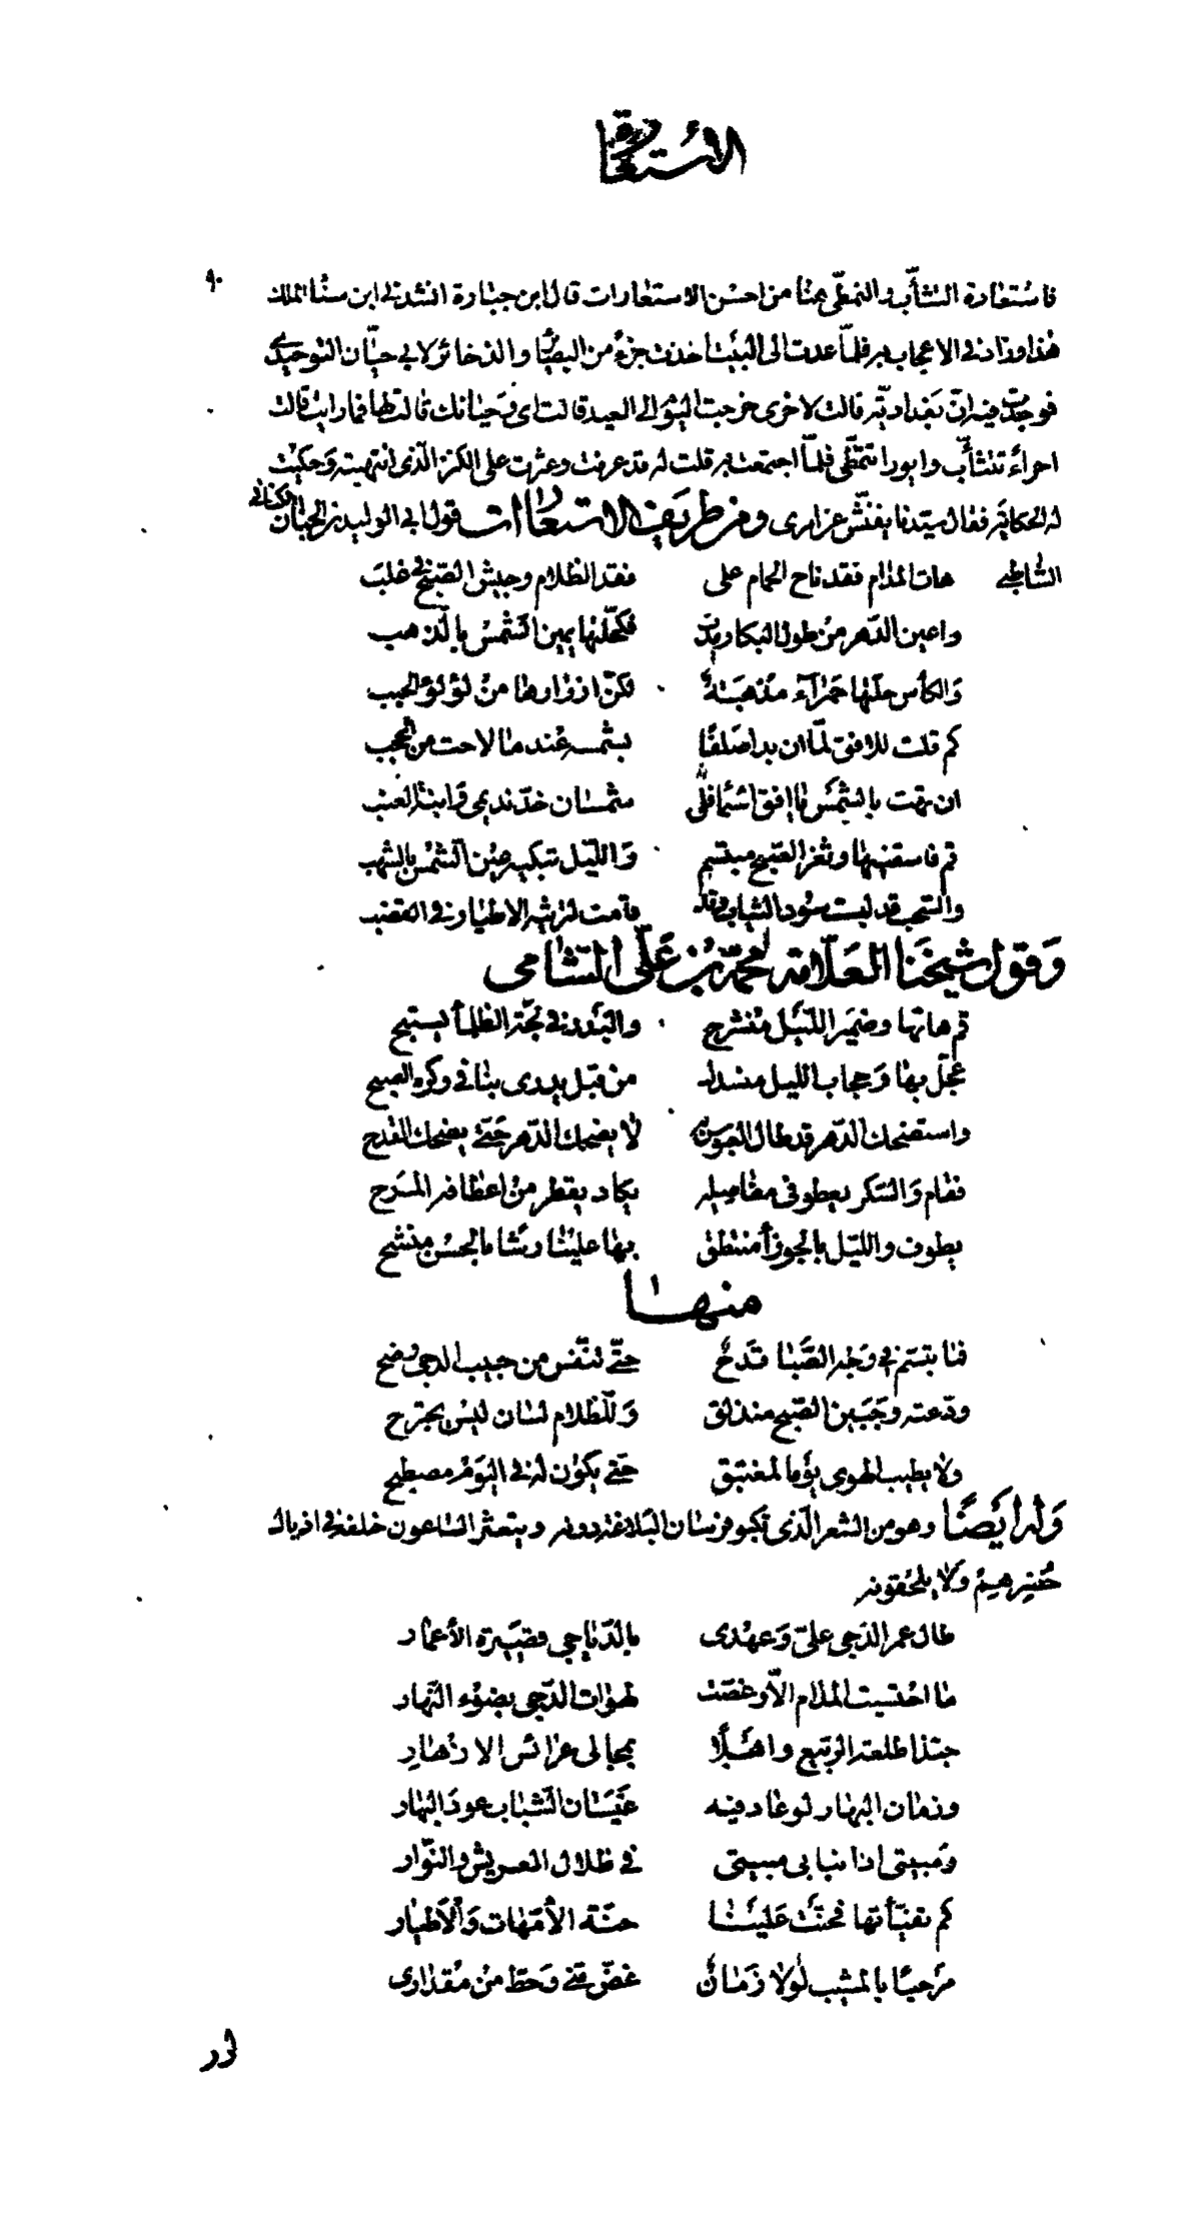 الاستعارة
٩٠
فاستعارة التثأب والتمطي هنا من احسن الاستعارات قال ابن جبارة انشدني ابن سنا الملك
هذا وزاد في الاعجاب به فلما عدت الى البيت اخذت جزء من البصائر والذخائر لابي حيان التوحيدي
فوجدت فيه ان بغدادية قالت لاخرى خرجت اليوم الى العيد قالت اى وحياتك قالت لها فما رايت قالت
احراء تتثأب وايورا تتمطى فلما اجتمعت به قلت له قد عرفت وعثرت على الكنز الذى انتهبته وحكيت
له الحكاية فقال سيدنا يفتش عزارى ومن طريف الاستعارات قول ابى الوليد بن الجنان الكنانى
الشاطبى هات المدام فقد ناح الحمام على فقد الظلام وجيش الصبح فى غلب
واعين الدهر من طول البكا رمدت فكحلتها يمين الشمس بالذهب
والكأس حلتها حمرآء مذهبة لكن ازرارها من لؤلؤ الحبب
كم قلت للافق لما ان بدا صلفا بشمسه عندما لاحت من الحجب
ان تهت بالشمس يا افق السما فلى شمسان خد نديمى وابنة العنب
قم فاسقنيها وثغر الصبح مبتسم والليل تبكيه عين الشمس بالشهب
والسحب قد لبست سود الثياب وقد قامت لترثيه الاطيار فى القضب
وقول شيخنا العلامة محمد بن على الشامى
قم هاتها وضمير الليل منشرح والبدر فى لجة الظلمأ يسبح
عجل بها وحجاب الليل منسدل من قبل يبدى بنا فى وكره الصبح
واستضحك الدهر قد طال العبوس به لا يضحك الدهر حتى يضحك القدح
فقام والسكر يعطو فى مفاصله يكاد يقطر من اعطافه المرح
يطوف والليل بالجوزأ منتطق بها علينا رشا بالحسن متشح
منها
فما تبسم فى وجه الصبا قدح حتى تنفس من جيب الدجى وضح
ودعته وجبين الصبح منذلق وللظلام لسان ليس يجترح
ولا يطيب الهوى يوما لمغتبق حتى يكون له فى اليوم مصطبح
وله ايضا وهو من الشعر الذى تكبو فرسان البلاغة دونه ويتعثر الساعون خلفه فى اذيال
حينهم ولا يلحقونه
طال عمر الدجى على وعهدى بالدياجى قصيرة الأعمار
ما احتسيت المدام الا وغصت لهوات الدجى بضوء النهار
حبذا طلعة الربيع واهلا بمجالى عرائس الازهار
وزمان البهار لو عاد فيه عنفسان الشباب عود البهار
ومبيتى اذا نبا بى مبيتى فى ظلال العريش والنوار
كم تفيأتها فحنت علينا حنة الأمهات والأطيار
مرحبا بالمشيب لولا زمان غض منى وحط من مقدارى